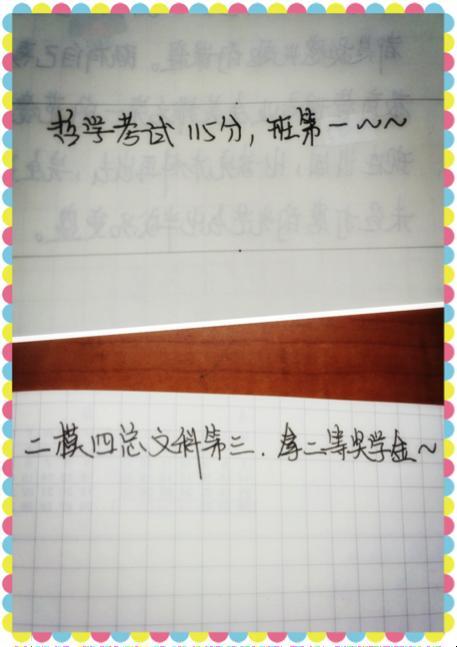 哲学考试 115分, 班第一~~
二模四总文科第三. 拿三等奖学金~